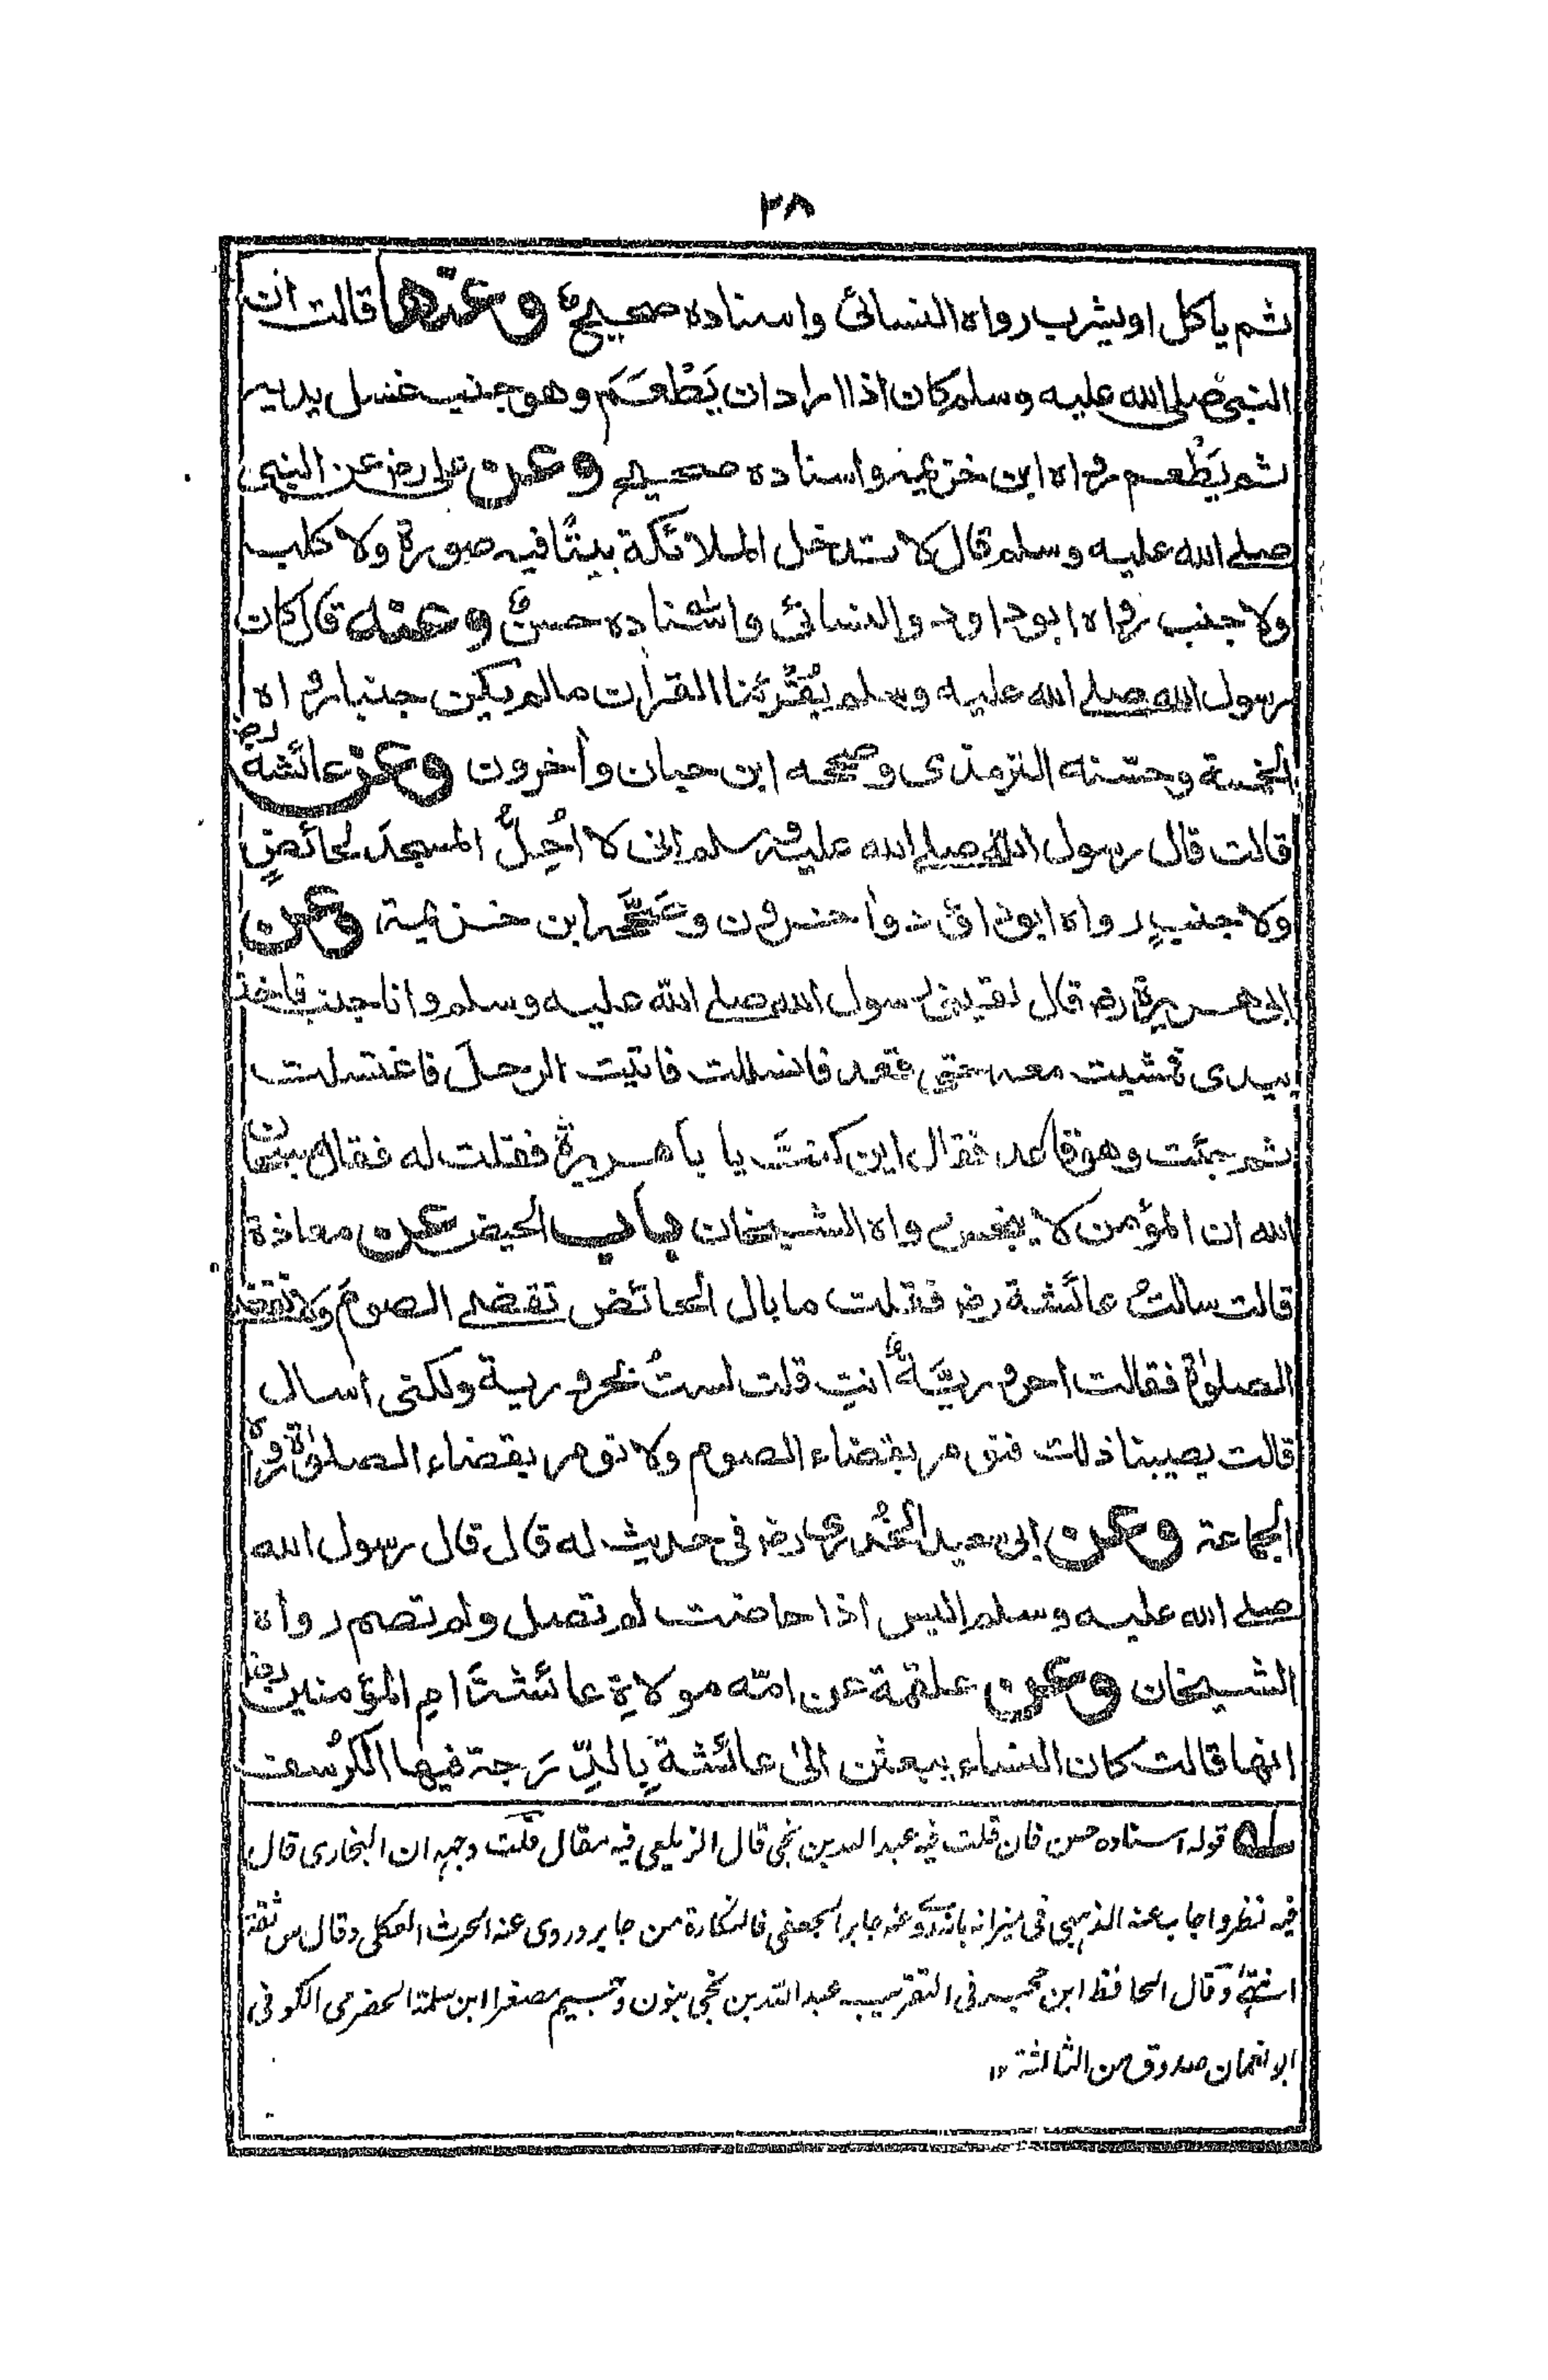 ٢٨
ثم ياكل اويشرب رواه النسائى واسناده صحيحٌ وعنها قالت ان
النبى صلى الله عليه وسلم كان اذا اراد ان يَطْعَم وهو جنب غسل يديه
ثم يَطْعم رواه ابن خزيمة واسناده صحيح وعن على رض عن النبى
صلے الله عليه وسلم قال لا تدخل الملائكة بيتًا فيه صورة ولا كلب
ولا جنب رواه ابوداود والنسائى واسناده حسنٌ وعنه قال كان
رسول الله صلے الله عليه وسلم يُقْرِئنا القران ما لم يكن جنبا رواه
الخمسة وحسّنه الترمذى وصححه ابن حبان واٰخرون وعن عائشة رض
قالت قال رسول الله صلے الله عليه وسلم انى لا اُحِلُّ المسجدَ لحائضٍ
ولا جنبٍ رواه ابوداؤد واٰخرون وصححه ابن خزيمة وعن
ابى هريرة رض قال لقينى رسول الله صلے الله عليه وسلم وانا جنب فاخذ
بيدى فمشيت معه حتى قعد فانسللت فاتيت الرحلَ فاغتسلت
ثم جئت وهو قاعد فقال اين كنتَ يا با هريرة فقلت له فقال سبحان
الله ان المؤمن لا ينجس رواه الشيخان باب الحيض عن معاذة
قالت سالتُ عائشة رض فقلت ما بال الحائض تقضے الصومَ ولا تقضے
الصلوٰة فقالت احروريّةٌ انتِ قلت لستُ بحرورية ولكنى اسال
قالت يصيبنا ذلك فنؤمر بقضاء الصوم ولا نؤمر بقضاء الصلوٰة رواه
الجماعة وعن ابى سعيد الخُدرى رض فى حديث له قال قال رسول الله
صلے الله عليه وسلم اليس اذا حاضت لم تصل ولم تصم رواه
الشيخان وعن علقمة عن امّه مولاةِ عائشةَ ام المؤمنين رض
انها قالت كان النساء يبعثن الىٰ عائشة بِالدِّرَجة فيها الكرُسف
له قوله اسناده حسن فان قلت فيه عبد الله بن نجى قال الزيلعى فيه مقال قلت وجهه ان البخارى قال
فيه نظر واجاب عنه الذهبى فى ميزانه بانه روى عنه جابر الجعفى فالنكارة من جابر وروى عنه الحرث العكلى وقال س ثقة
انتهىٰ وقال الحافظ ابن حجر فى التقريب عبد الله بن نجى بنون وجيم مصغرا ابن سلمة الحضرمى الكوفى
ابو لقمان صدوق من الثالثة ١٢